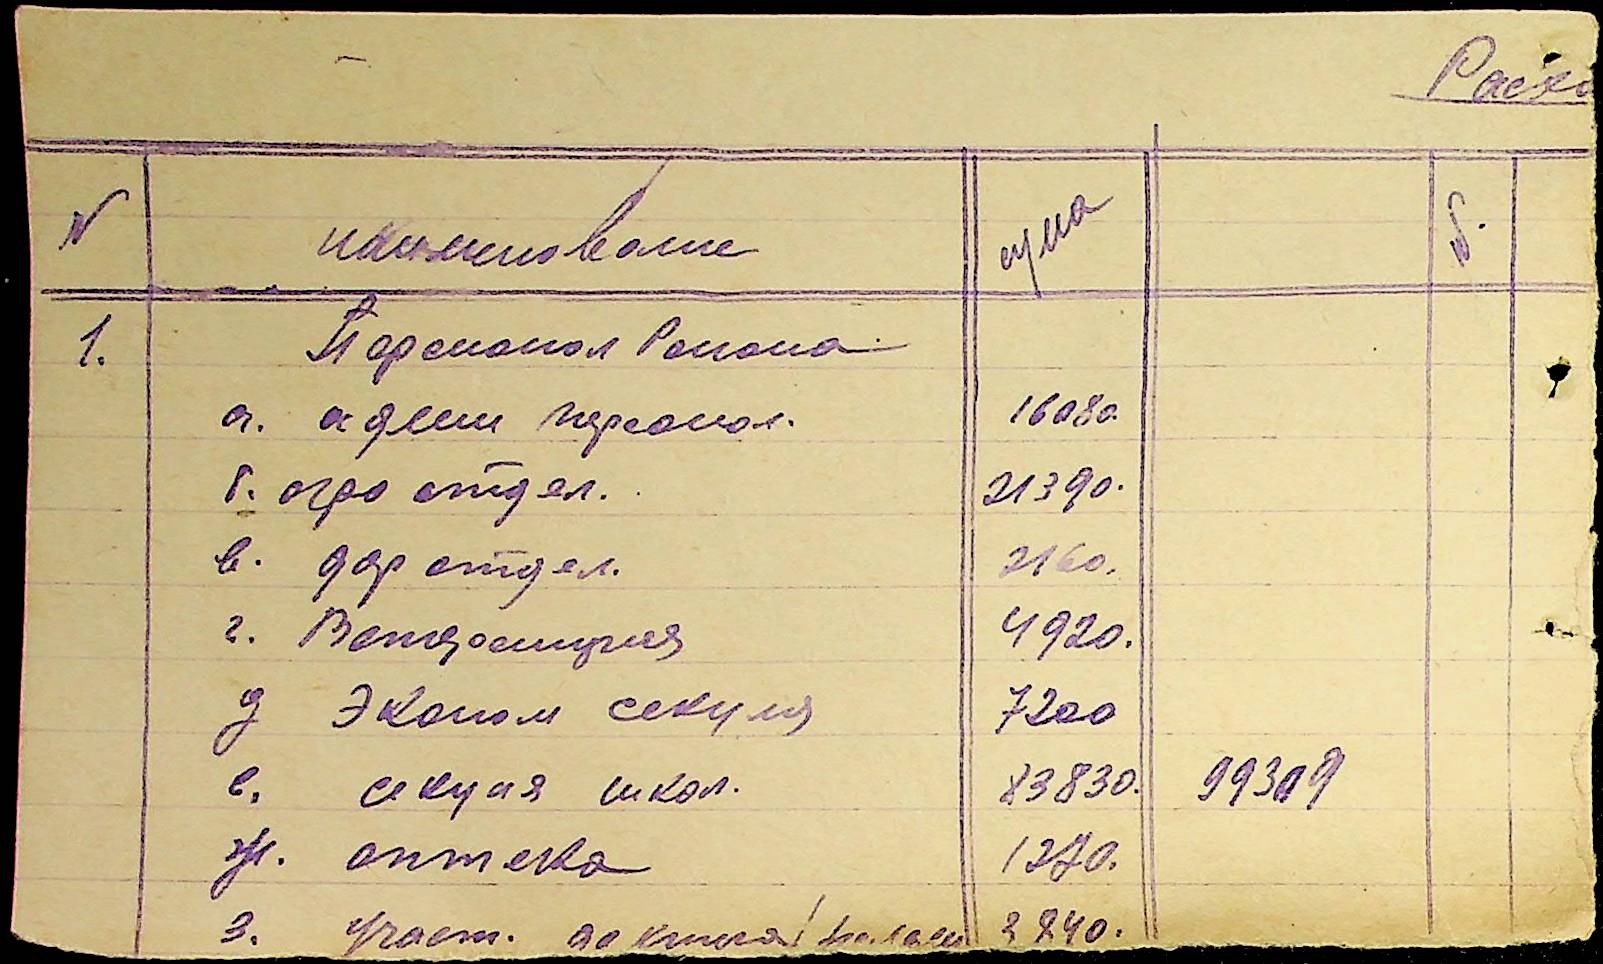 Расхо
N наименование сума N.
1. Персонал Района
а. админ персонал. 16080.
б. агро отдел. 21390.
в. дор отдел. 2160.
г. Ветсекция 4920.
д Эконом секция 7200
е. секция школ. 83830. 99309
ж. аптека 1270.
з. Участ. 2840.